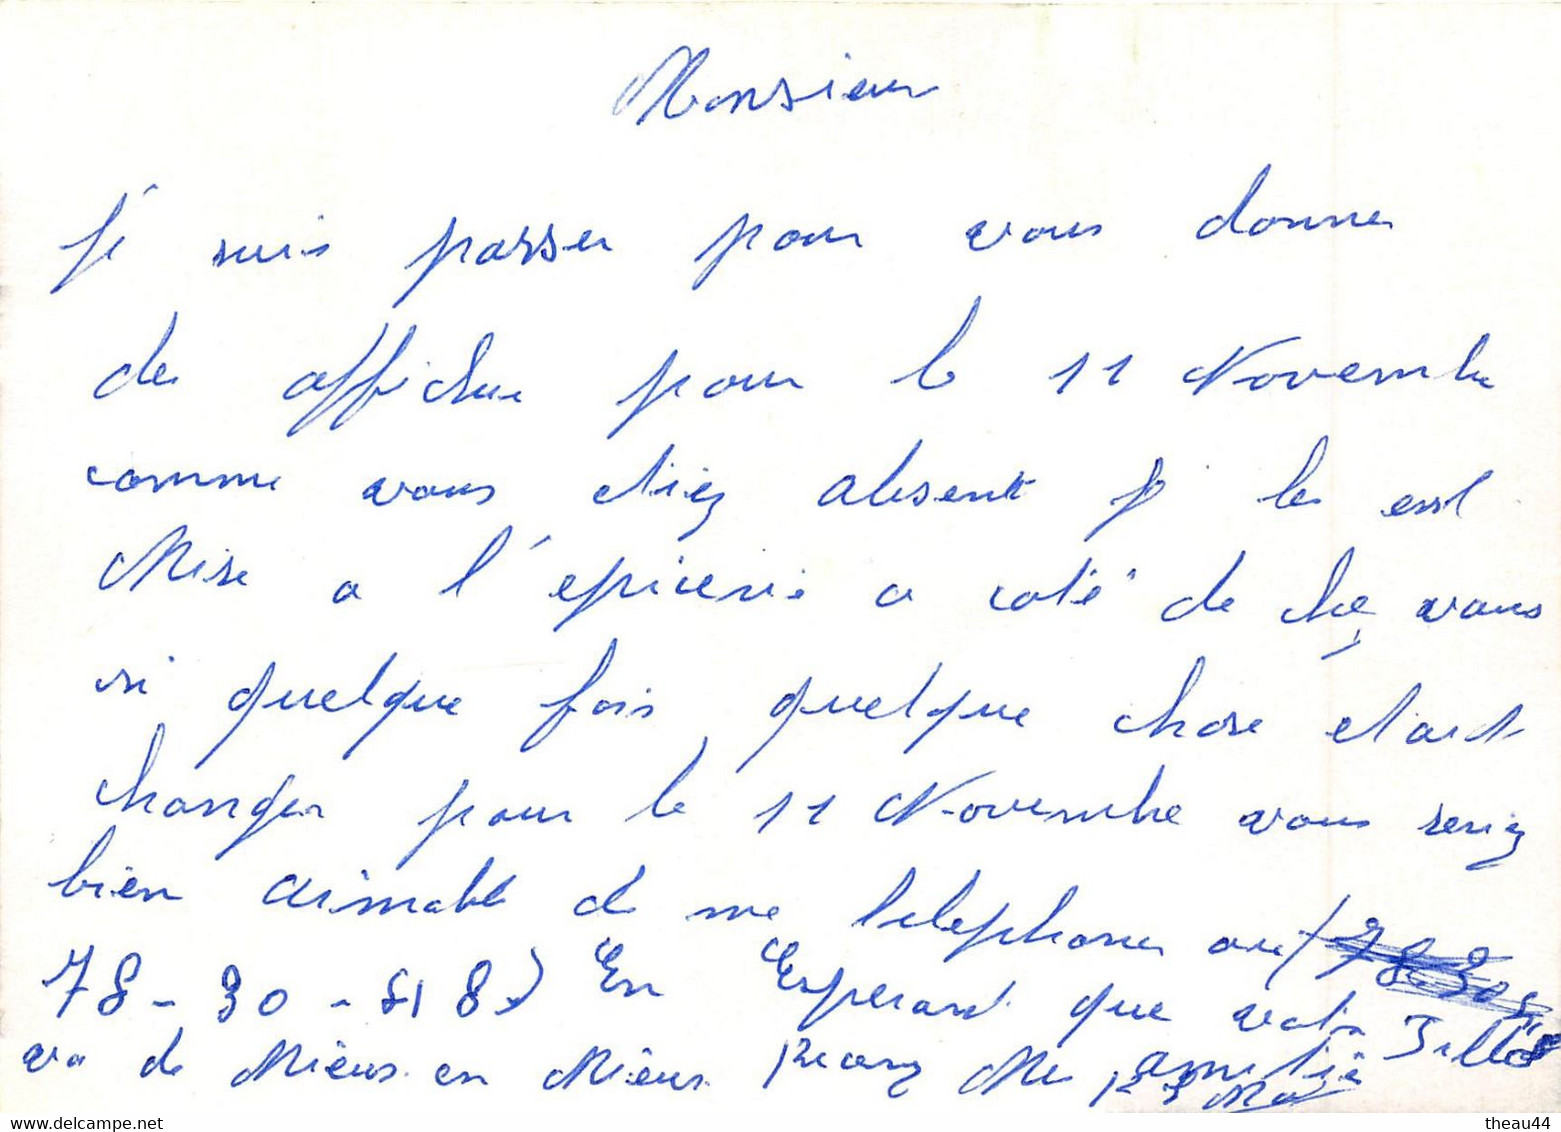 Monsieur
Je suis passer pour vous donner
des affiche pour le 11 Novembre
comme vous etiez absent je les est
Mise a l'épicerie a coté de chez vous
si quelque fois quelque chose etait
changer pour le 11 Novembre vous seriez
bien aimable de me telephoner au (
78-30-818) En Esperant que votre
va de Mieus en Mieus. Recevez Mes amitié
theau44